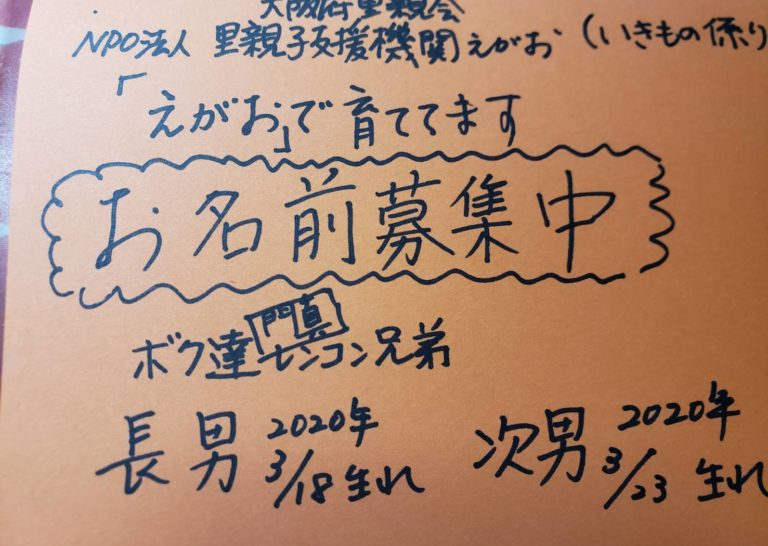 大阪府里親会
NPO法人 里親子支援機関えがお (いきもの係り
「えがお」で育ててます
お名前募集中
門真
ボク達レンコン兄弟
長男 2020年 3/18生れ
次男 2020年 3/23 生れ